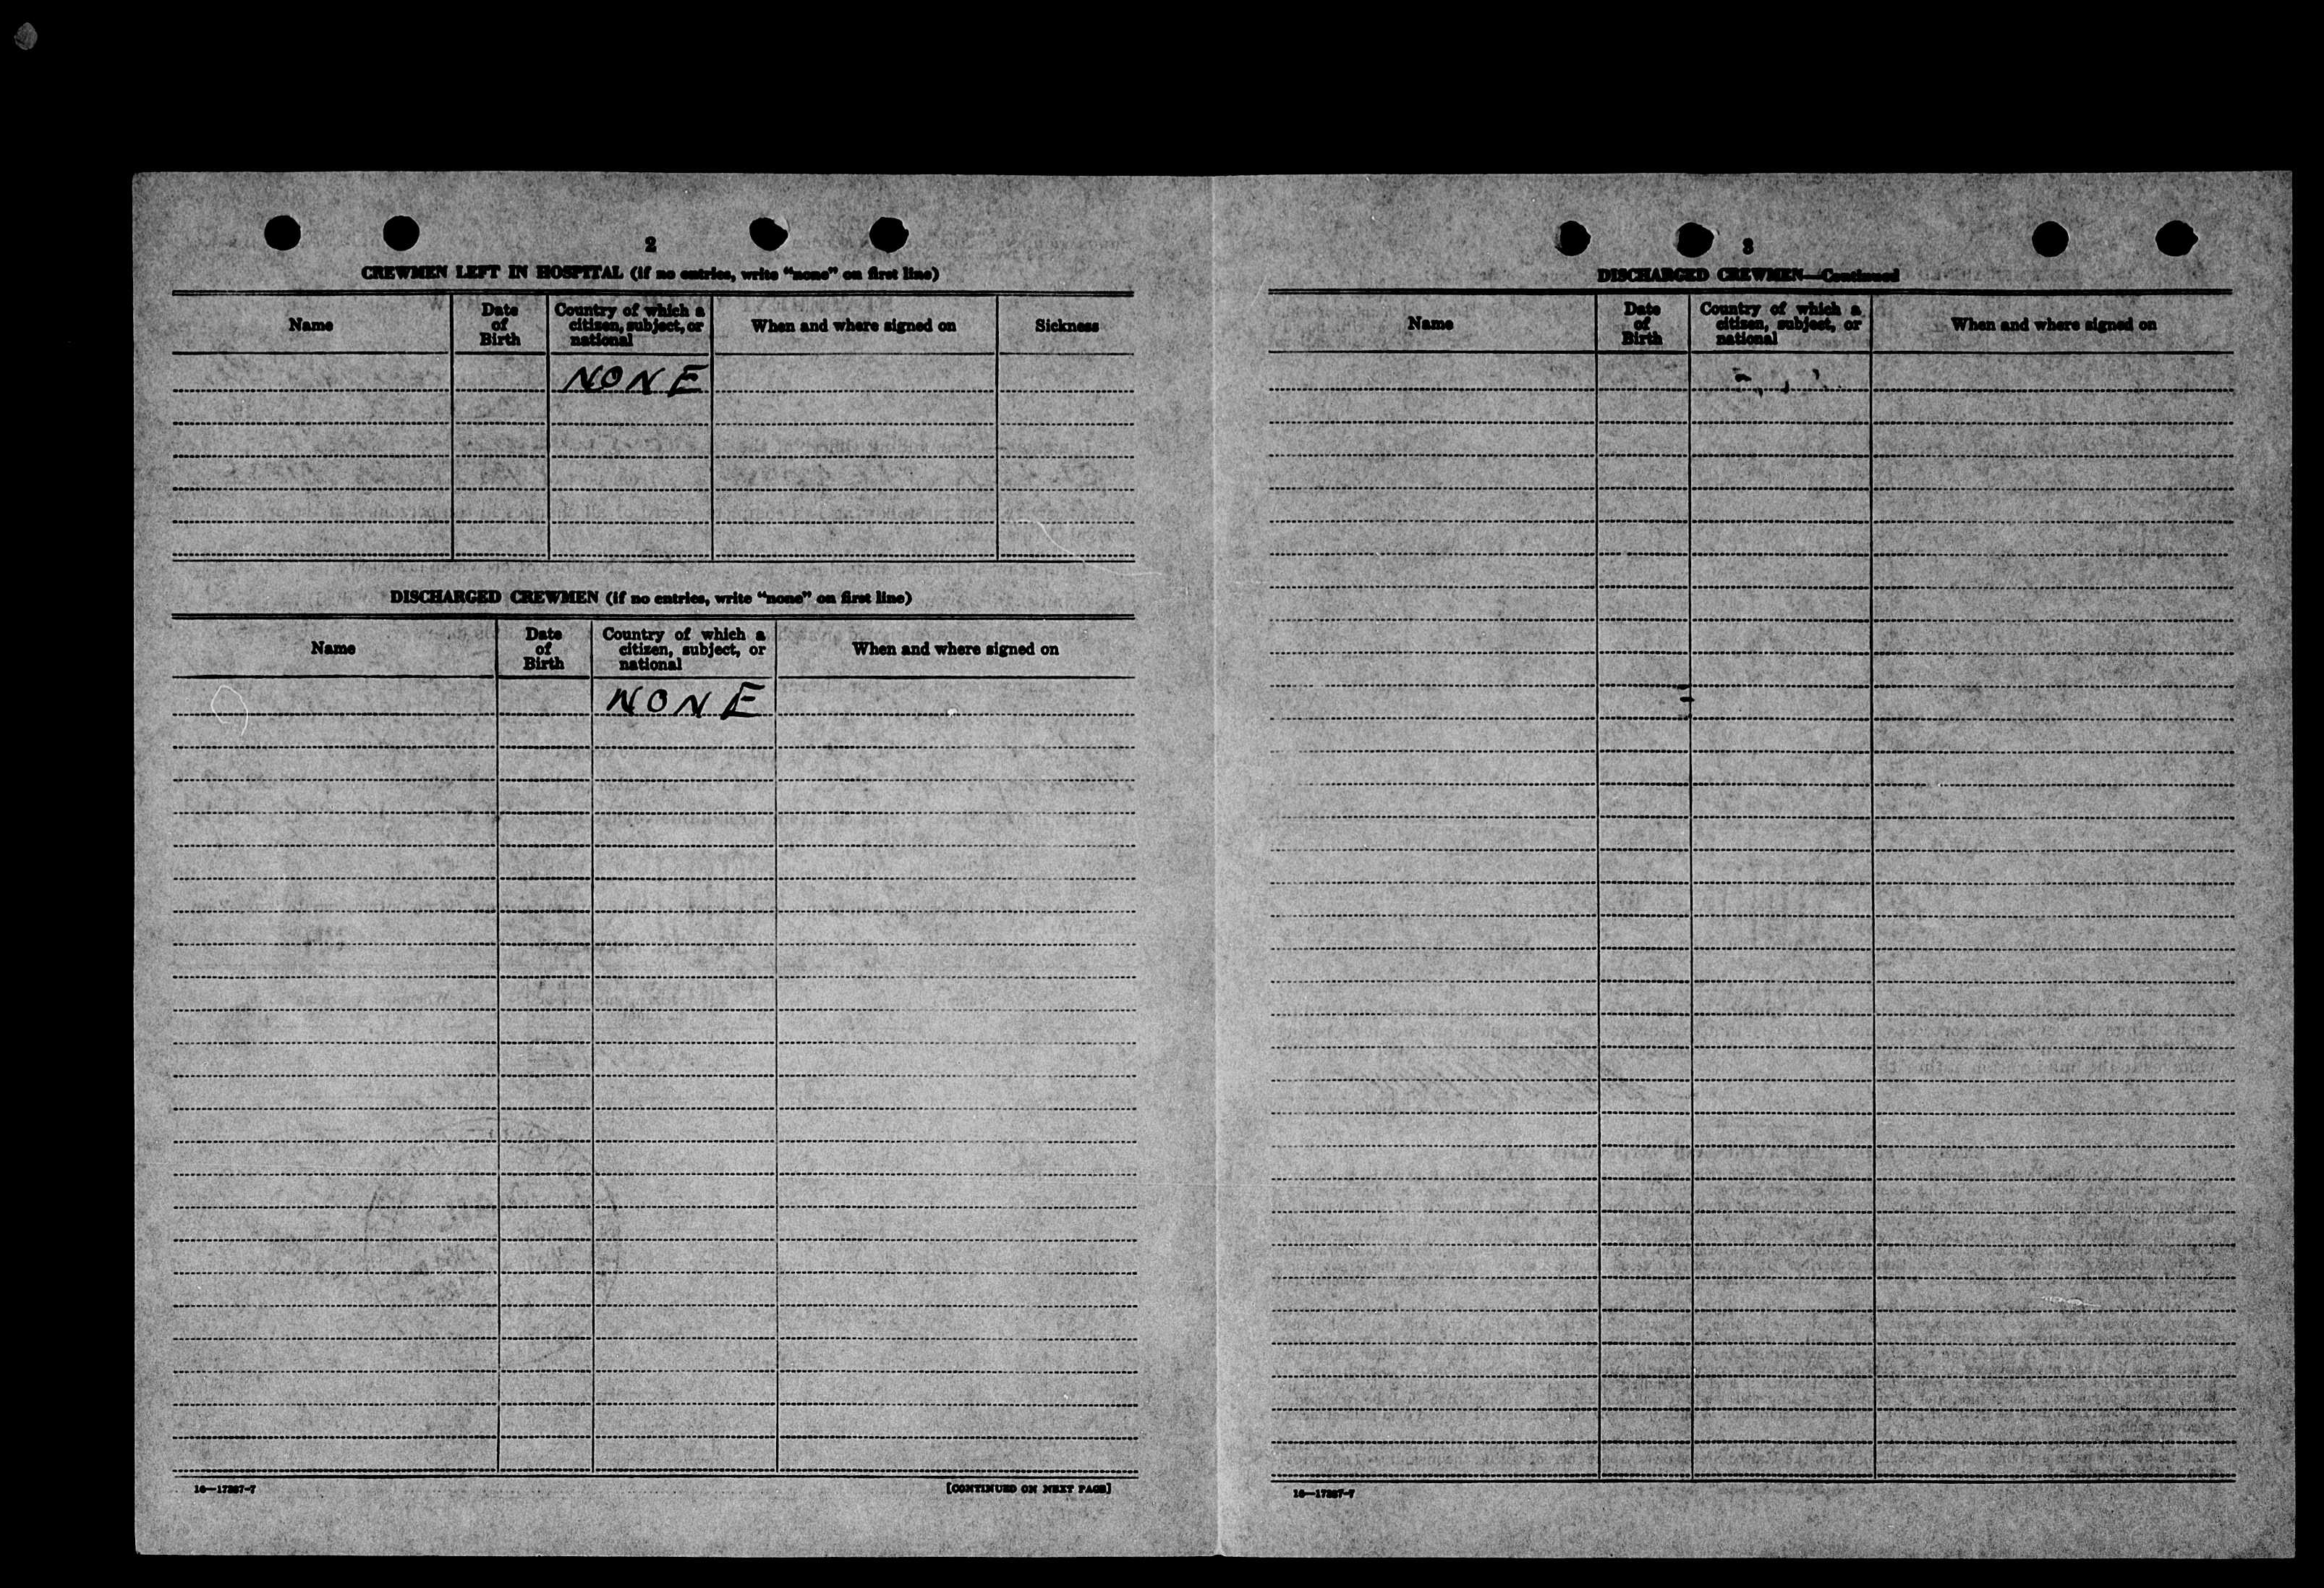 2
CREWMEN LEFT IN HOSPITAL (if no entries, write "none" on first line)
Name
Date of Birth
Country of which a citizen, subject, or national
When and where signed on
Sickness
NONE
DISCHARGED CREWMEN (if no entries, write "none" on first line)
Name
Date of Birth
Country of which a citizen, subject, or national
When and where signed on
NONE
16—17287-7
[CONTINUED ON NEXT PAGE]
3
DISCHARGED CREWMEN—Continued
Name
Date of Birth
Country of which a citizen, subject, or national
When and where signed on
16—17287-7